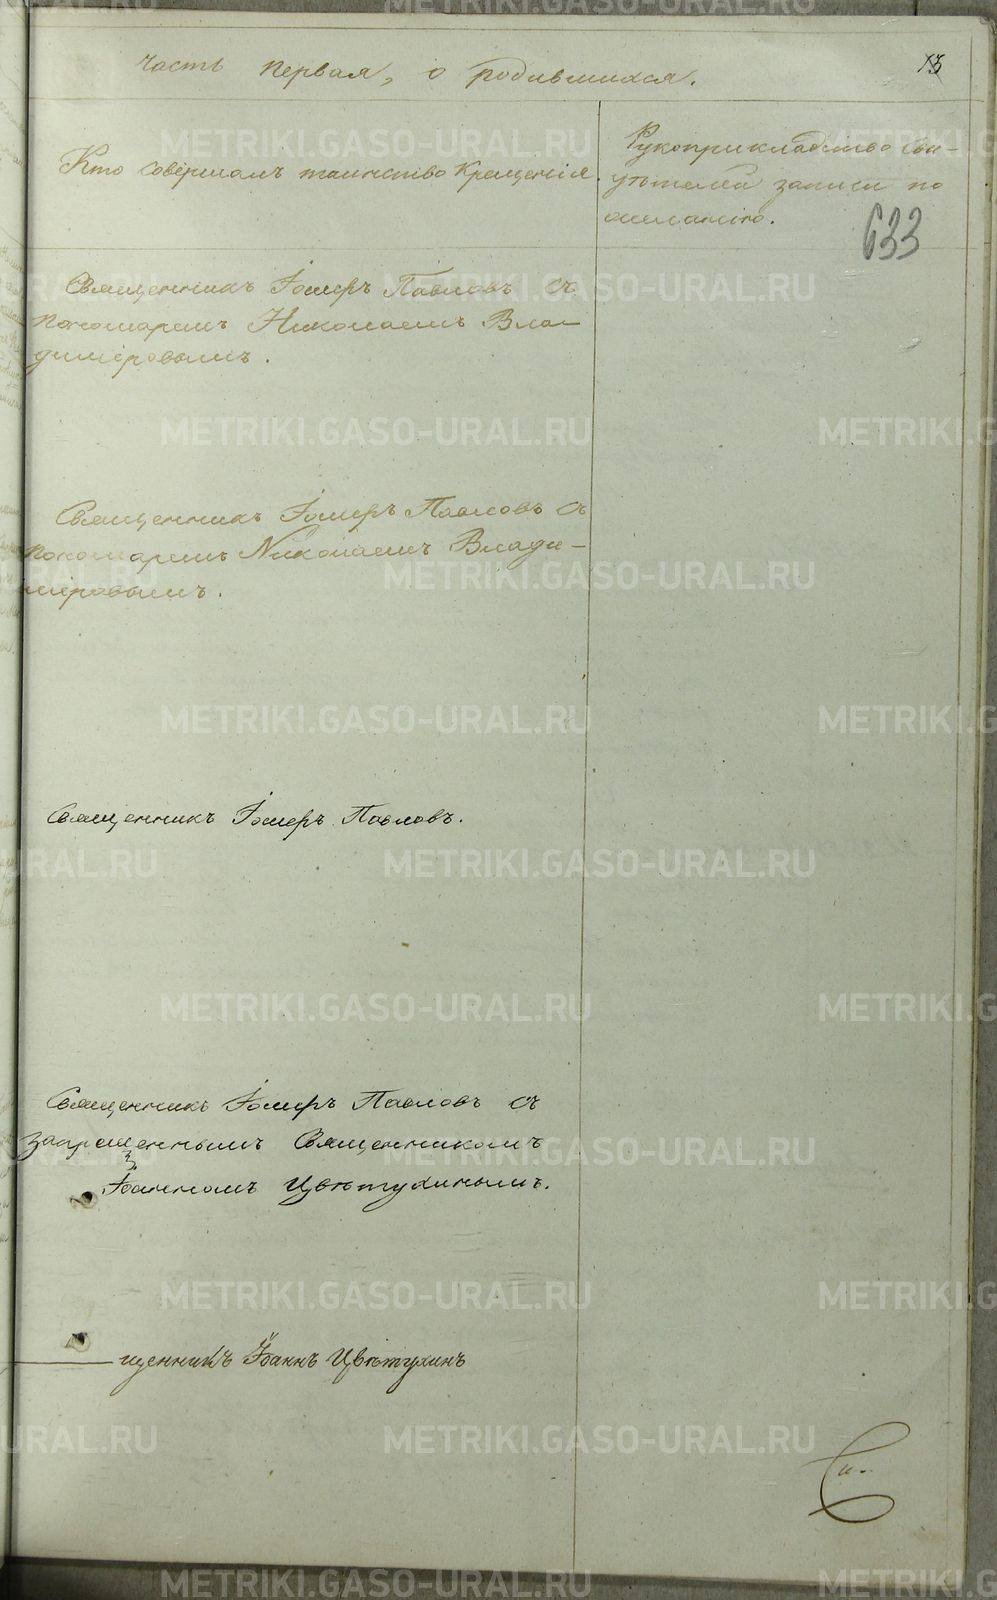 Часть первая, о родившихся.
13
Кто совершалъ таинство Крещенія.
Рукоприкладство сви-
дѣтелей записи по
желанію.
633
Священникъ Іосифъ Павловъ съ
пономаремъ Николаемъ Вла-
диміровымъ.
Священникъ Іосифъ Павловъ съ
пономаремъ Николаемъ Влади-
міровымъ.
Священникъ Іосифъ Павловъ.
Священникъ Іосифъ Павловъ съ
запрещеннымъ Священникомъ
Іоанномъ Цвѣтухинымъ.
щенникъ Іоаннъ Цвѣтухинъ
METRIKI.GASO-URAL.RU